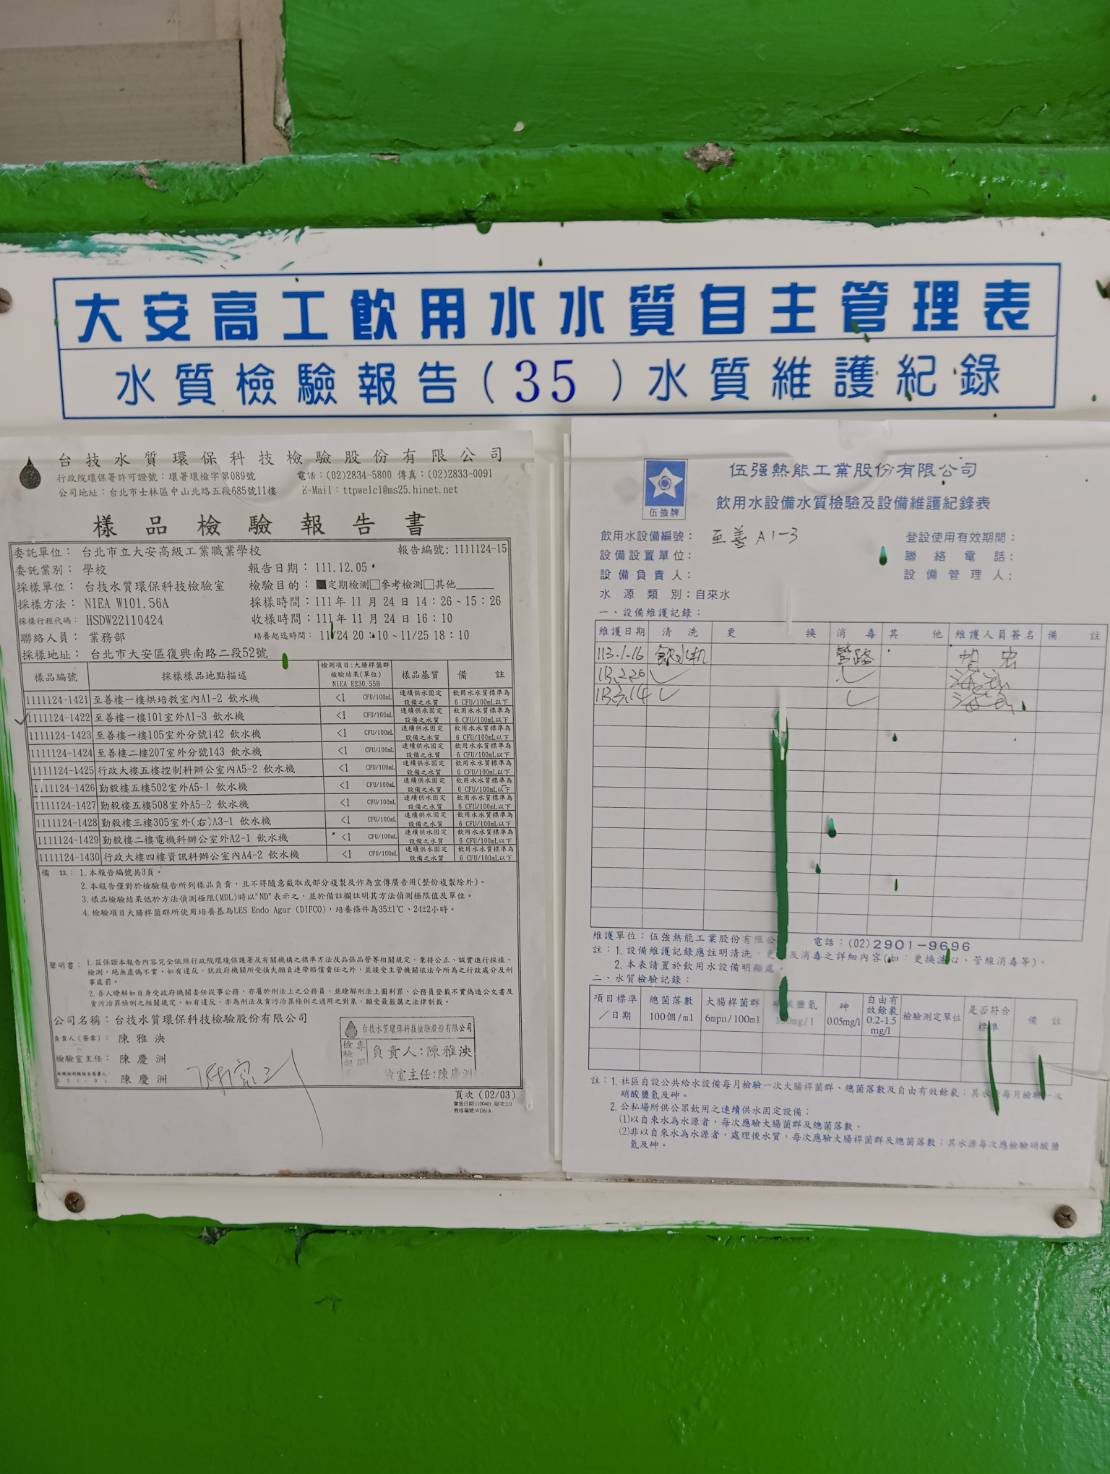 大安高工飲用水水質自主管理表
水質檢驗報告(35)水質維護紀錄
台技水質環保科技檢驗股份有限公司
行政院環保署許可證號：環署環檢字第089號 電話：(02)2834-5800 傳真：(02)2833-0091
公司地址：台北市士林區中山北路五段685號11樓 E-Mail：ttpwelcl@ms25.hinet.net
樣品檢驗報告書
委託單位：台北市立大安高級工業職業學校 報告編號：1111124-15
委託業別：學校 報告日期：111.12.05
採樣單位：台技水質環保科技檢驗室 檢驗目的：■定期檢測□參考檢測□其他
採樣方法：NIEA W101.56A 採樣時間：111年11月24日14：26~15：26
採樣行程代碼：HSDW22110424 收樣時間：111年11月24日16：10
聯絡人員：業務部 培養起迄時間：11/24 20：10~11/25 18：10
採樣地址：台北市大安區復興南路二段52號
樣品編號 採樣樣品地點描述 檢測項目：大腸桿菌群 檢驗結果(單位) NIEA E230.55B 樣品基質 備註
1111124-1421 至善樓一樓烘培教室內A1-2 飲水機 <1 CFU/100mL 連續供水固定設備之水質 飲用水水質標準為6 CFU/100mL以下
1111124-1422 至善樓一樓101室外A1-3 飲水機 <1 CFU/100mL 連續供水固定設備之水質 飲用水水質標準為6 CFU/100mL以下
1111124-1423 至善樓一樓105室外分號142 飲水機 <1 CFU/100mL 連續供水固定設備之水質 飲用水水質標準為6 CFU/100mL以下
1111124-1424 至善樓二樓207室外分號143 飲水機 <1 CFU/100mL 連續供水固定設備之水質 飲用水水質標準為6 CFU/100mL以下
1111124-1425 行政大樓五樓控制科辦公室內A5-2 飲水機 <1 CFU/100mL 連續供水固定設備之水質 飲用水水質標準為6 CFU/100mL以下
1111124-1426 勤毅樓五樓502室外A5-1 飲水機 <1 CFU/100mL 連續供水固定設備之水質 飲用水水質標準為6 CFU/100mL以下
1111124-1427 勤毅樓五樓508室外A5-2 飲水機 <1 CFU/100mL 連續供水固定設備之水質 飲用水水質標準為6 CFU/100mL以下
1111124-1428 勤毅樓三樓305室外(右)A3-1 飲水機 <1 CFU/100mL 連續供水固定設備之水質 飲用水水質標準為6 CFU/100mL以下
1111124-1429 勤毅樓二樓電機科辦公室外A2-1 飲水機 <1 CFU/100mL 連續供水固定設備之水質 飲用水水質標準為6 CFU/100mL以下
1111124-1430 行政大樓四樓資訊科辦公室內A4-2 飲水機 <1 CFU/100mL 連續供水固定設備之水質 飲用水水質標準為6 CFU/100mL以下
備註：1.本報告編號共3頁。
2.本報告僅對於檢驗報告所列樣品負責，且不得隨意截取或部分複製及作為宣傳廣告用(整份複製除外)。
3.樣品檢驗結果低於方法偵測極限(MDL)時以"ND"表示之，並於備註欄註明其方法偵測極限值及單位。
4.檢驗項目大腸桿菌群所使用培養基為LES Endo Agar (DIFCO)，培養條件為35±1℃、24±2小時。
聲明書：1.茲保證本報告內容完全依照行政院環境保護署及有關機構之標準方法及品保品管等相關規定，秉持公正、誠實進行採樣、
檢測，絕無虛偽不實，如有違反，就政府機關所受損失願負連帶賠償責任之外，並接受主管機關依法令所為之行政處分及刑
事處罰。
2.吾人瞭解如自身受政府機關委任從事公務，亦屬於刑法上之公務員，並瞭解刑法上圖利罪、公務員登載不實偽造公文書及
貪污治罪條例之相關規定，如有違反，亦為刑法及貪污治罪條例之適用之對象，願受最嚴厲之法律制裁。
公司名稱：台技水質環保科技檢驗股份有限公司
負責人(簽章)：陳雅泱
檢驗室主任：陳慶洲
陳慶洲
台技水質環保科技檢驗股份有限公司
檢驗專用
負責人：陳雅泱
室主任：陳慶洲
頁次(02/03)
伍強牌
伍强熱能工業股份有限公司
飲用水設備水質檢驗及設備維護紀錄表
飲用水設備編號：至善 A1-3 登設使用有效期間：
設備設置單位： 聯絡電話：
設備負責人： 設備管理人：
水源類別：自來水
一、設備維護記錄：
維護日期 清洗 更換 消毒 其他 維護人員簽名 備註
113.1.16 飲水机 管路
113.2.26 ✓ ✓
113.3.14 ✓ ✓
維護單位：伍強熱能工業股份有限公 電話：(02)2901-9696
註：1.設備維護記錄應註明清洗、更 及消毒之詳細內容(如：更換濾 、管線消毒等)。
2.本表請置於飲用水設備明顯處。
二、水質檢驗記錄：
項目標準／日期 總菌落數 100個/ml 大腸桿菌群 6mpu/100ml 酸鹽氮 mg/l 砷 0.05mg/l 自由有效餘氯 0.2-1.5 mg/l 檢驗測定單位 是否符合標準 備註
註：1.社區自設公共給水設備每月檢驗一次大腸桿菌群、總菌落數及自由有效餘氯；其水 每月檢驗一次
硝酸鹽氮及砷。
2.公私場所供公眾飲用之連續供水固定設備：
(1)以自來水為水源者，每次應驗大腸桿菌群及總菌落數。
(2)非以自來水為水源者，處理後水質，每次應驗大腸桿菌群及總菌落數；其水源每次應檢驗硝酸鹽
氮及砷。